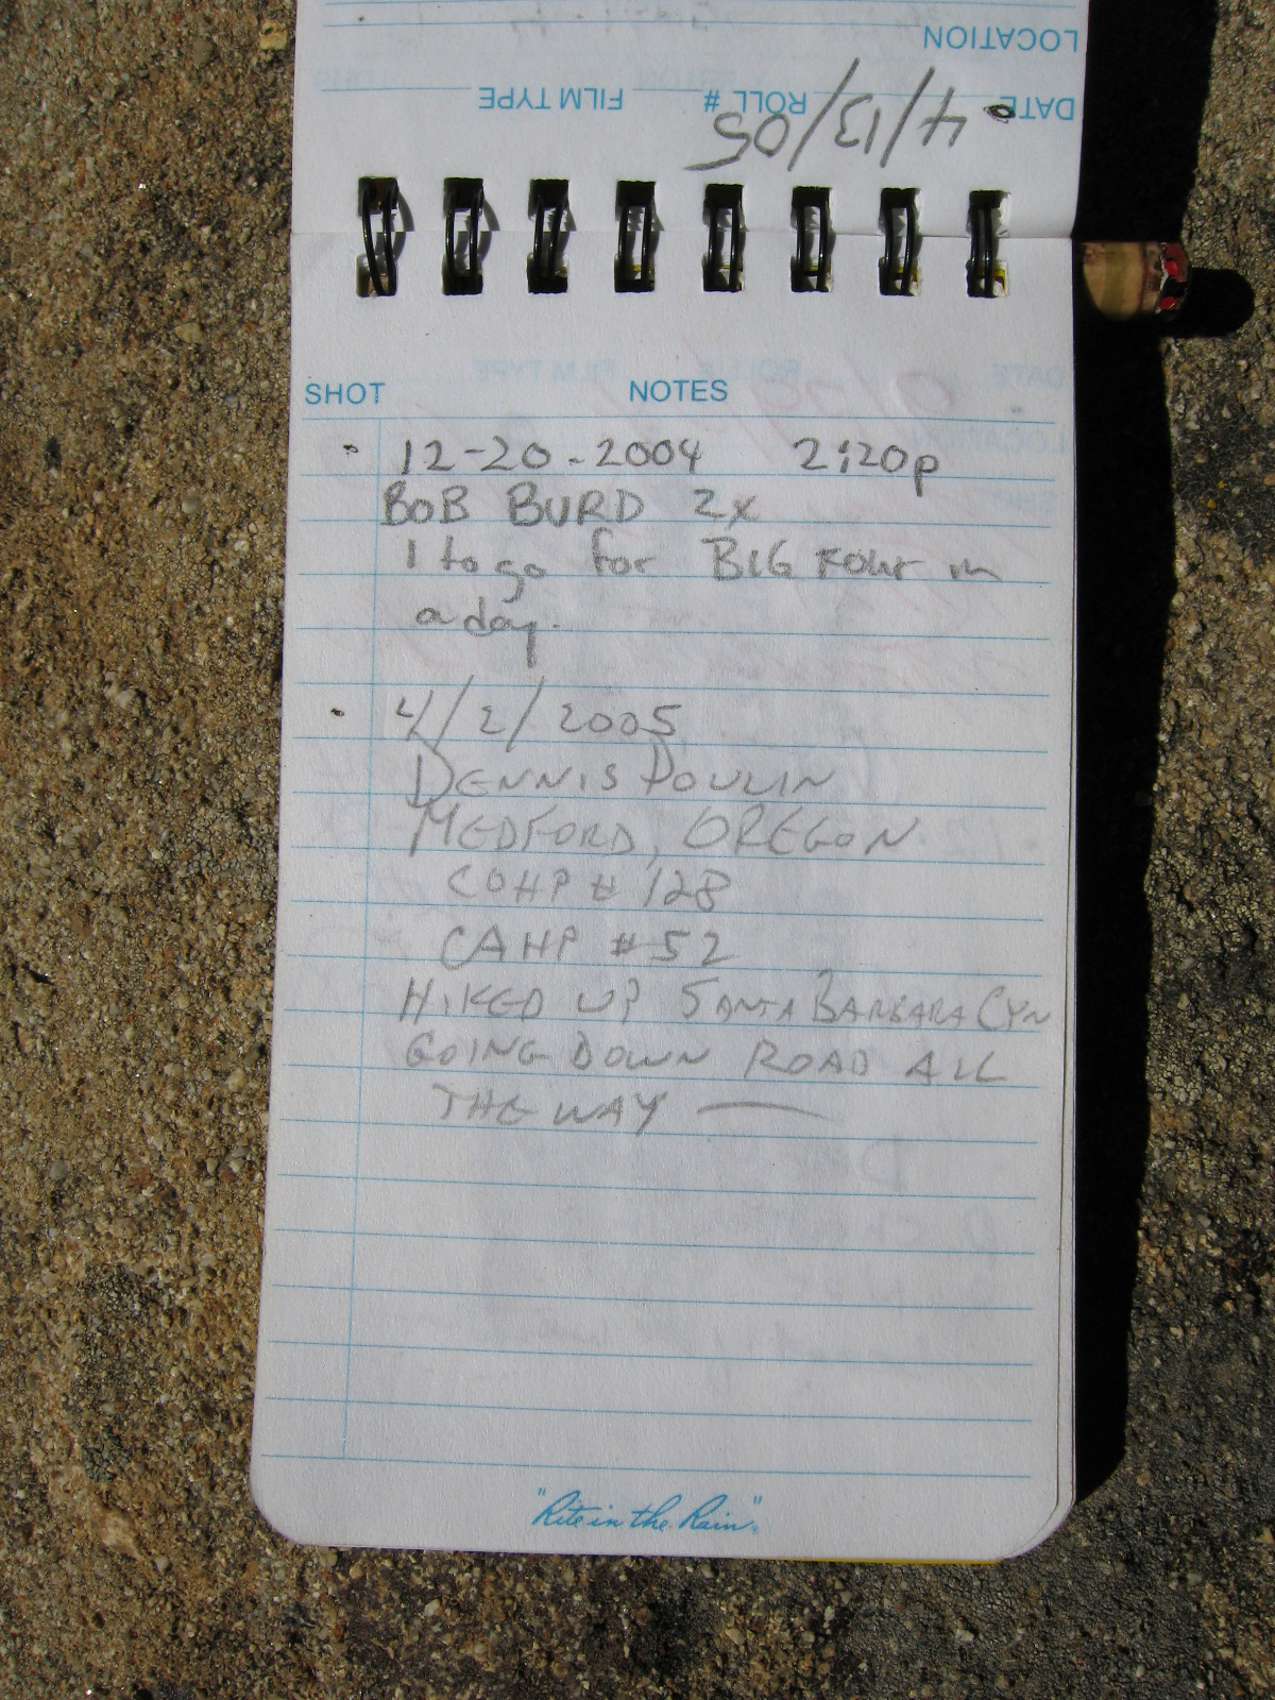 LOCATION
DATE ROLL # FILM TYPE
4/13/05
SHOT NOTES
12-20-2004 2:20p
BOB BURD 2x
1 to go for BIG FOUR in
a day.
4/2/2005
DENNIS POULIN
MEDFORD, OREGON
COHP # 128
CAHP #52
HIKED UP SANTA BARBARA CYN
GOING DOWN ROAD ALL
THE WAY —
"Rite in the Rain"